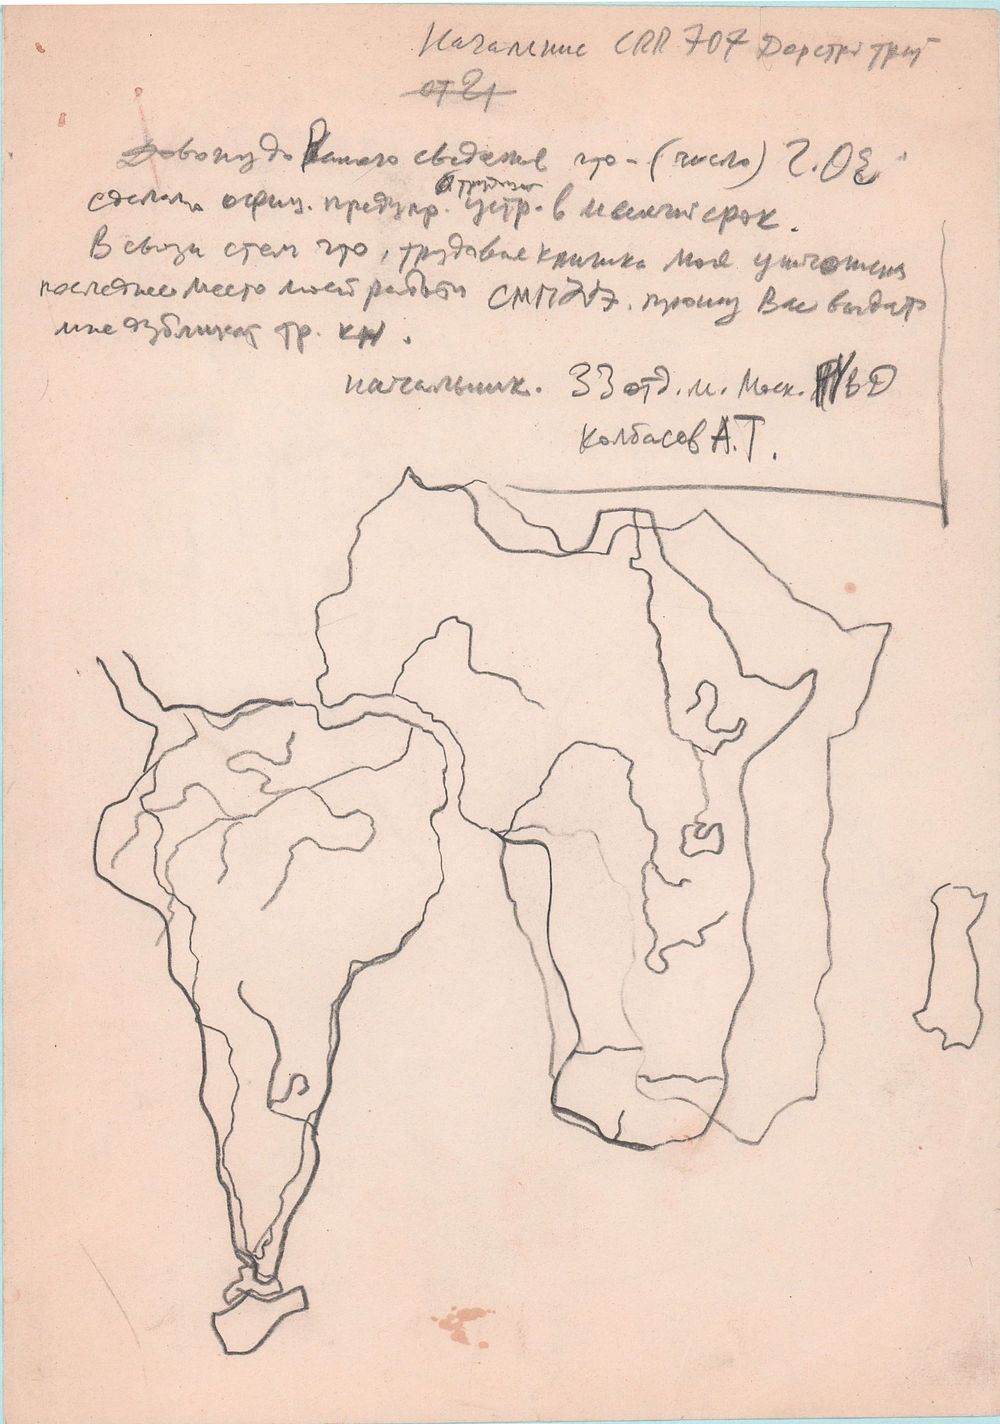 СМП 707
от
Довожу до Вашего сведения что - (число) Г.ОЕ
сделала офиц. предупр. о трудоустр. в месячный срок.
В связи с тем что, трудовая книжка моя уничтожена
последнее место моей работы СМП 707. прошу Вас выдать
мне дубликат тр. кн.
начальник. 33 отд. м. Моск. РУВД
Колбасов А.Т.